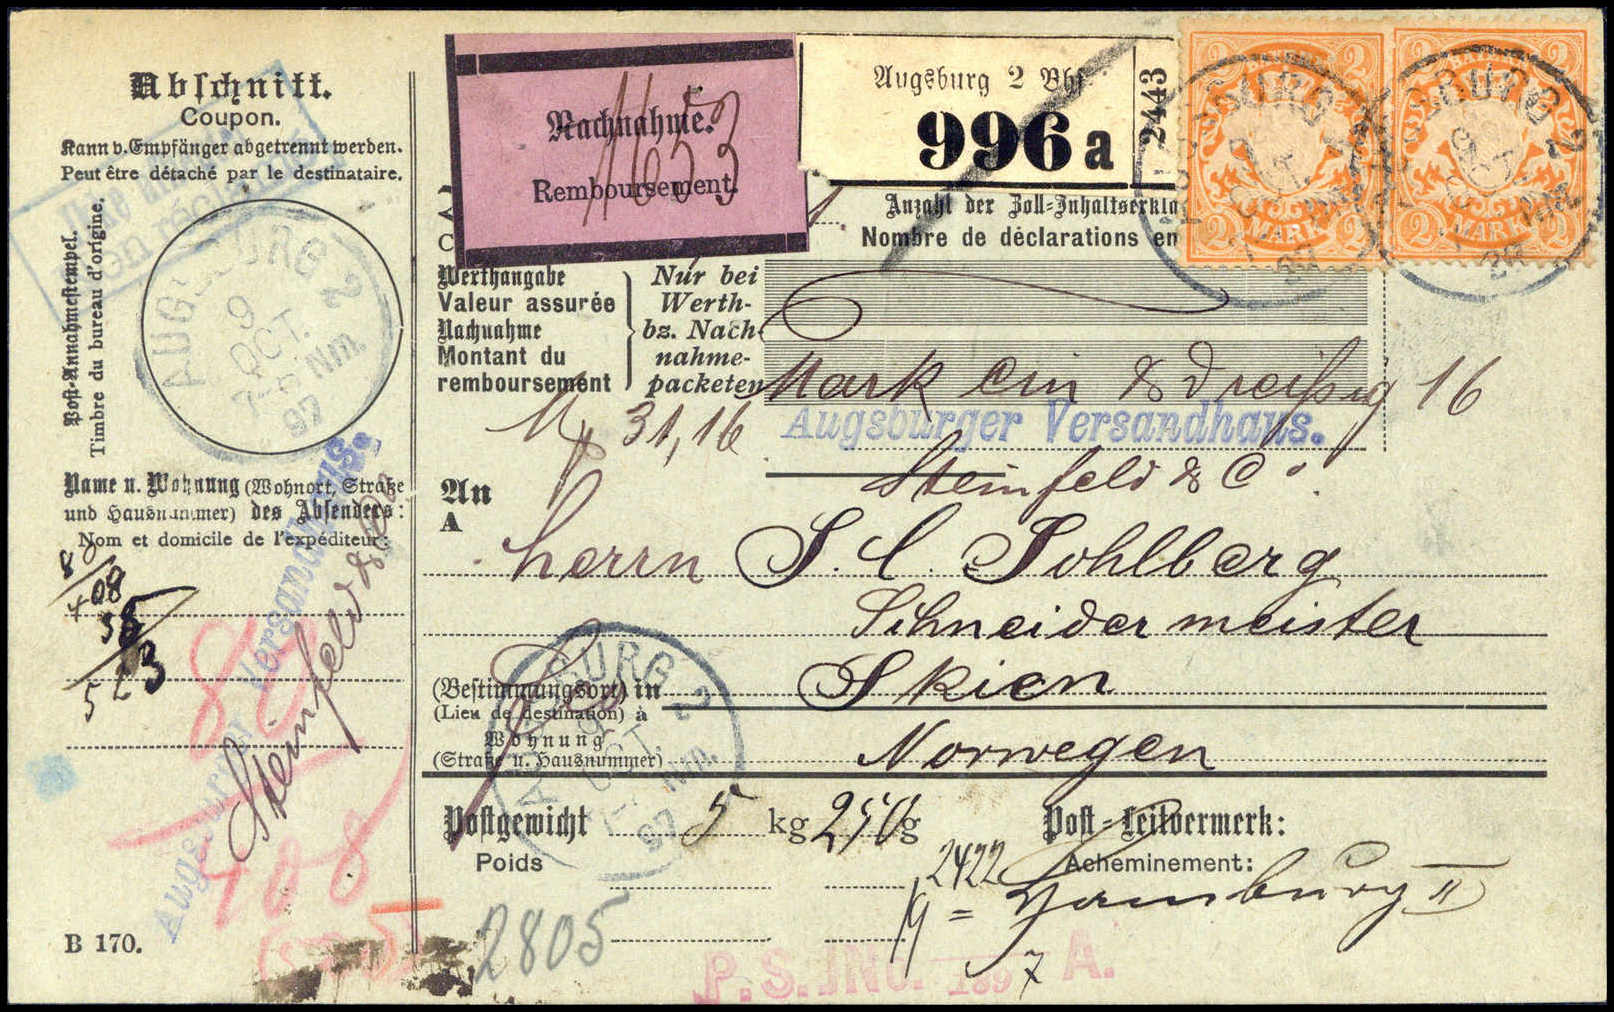 Abschnitt.
Coupon.
Kann v. Empfänger abgetrennt werden.
Peut être détaché par le destinataire.
Post-Annahmestempel.
Timbre du bureau d'origine.
AUGSBURG 2
9
OCT.
Nm.
97
Name u. Wohnung (Wohnort, Straße
und Hausnummer) des Absenders:
Nom et domicile de l'expéditeur:
Augsburger Versandhaus.
Steinfeld & Co
80
408
B 170.
Nachnahme.
Remboursement.
1653
Augsburg 2 Bhf
996 a
2443
Anzahl der Zoll-Inhaltserkla
Nombre de déclarations en
BAYERN
2 MARK 2
BAYERN
2 MARK 2
AUGSBURG 2
OCT.
Nm.
97
Werthangabe
Valeur assurée
Nachnahme
Montant du
remboursement
Nur bei
Werth-
bz. Nach-
nahme-
packeten
Mark ein & dreißig 16
M 31,16
Augsburger Versandhaus.
Steinfeld & Co
An
A
Herrn S. C. Sohlberg
Schneidermeister
(Bestimmungsort) in Skien
(Lieu de destination) à
Wohnung
(Straße u. Hausnummer) Norwegen
AUGSBURG 2
9
OCT.
Nm.
97
Postgewicht 5 kg 250 g
Poids
Post-Leitvermerk:
Acheminement:
2422
Hamburg II
19 =
7
2805
P.S. INO. 189 A.